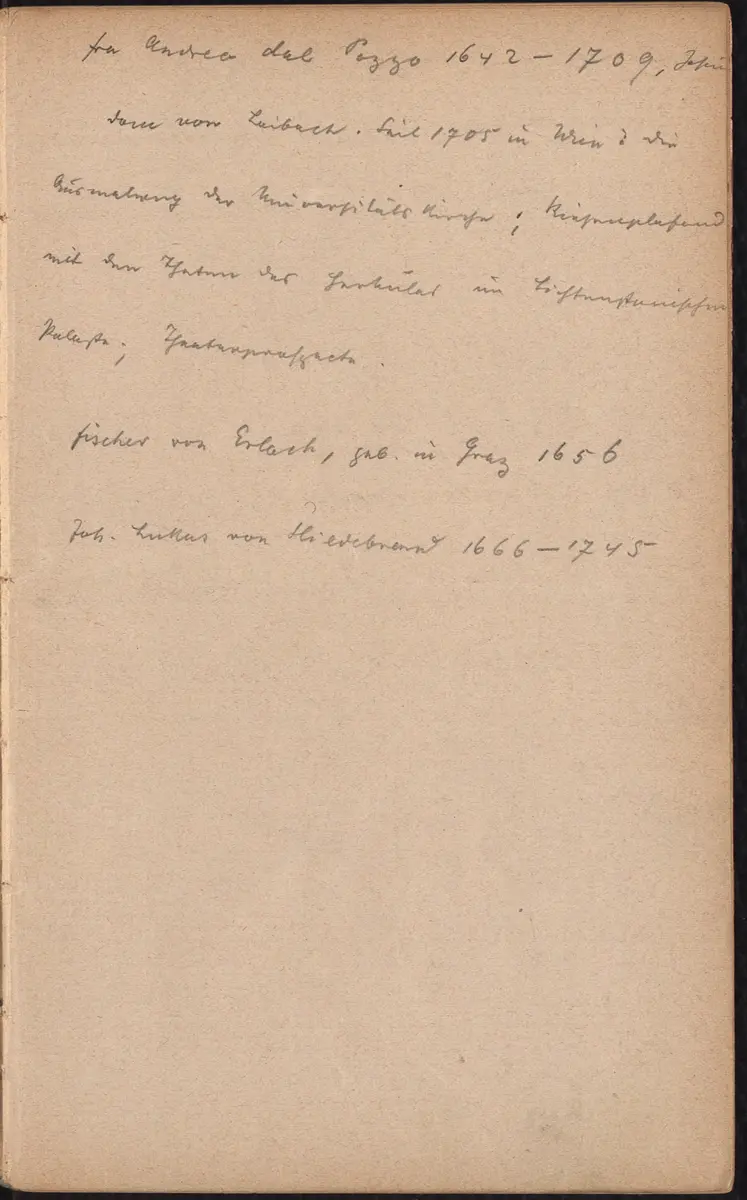 fra Andrea dal Pozzo 1642 – 1709, Jesui
dom von Laibach. Seit 1705 in Wien: die
Ausmalung der Universitäts Kirche; Riesenplafond
mit den Thaten des Herkules im Lichtensteinischen
Palaste; Theaterprospecte.
Fischer von Erlach, geb. in Graz 1656
Joh. Lukas von Hildebrand 1666 – 1745